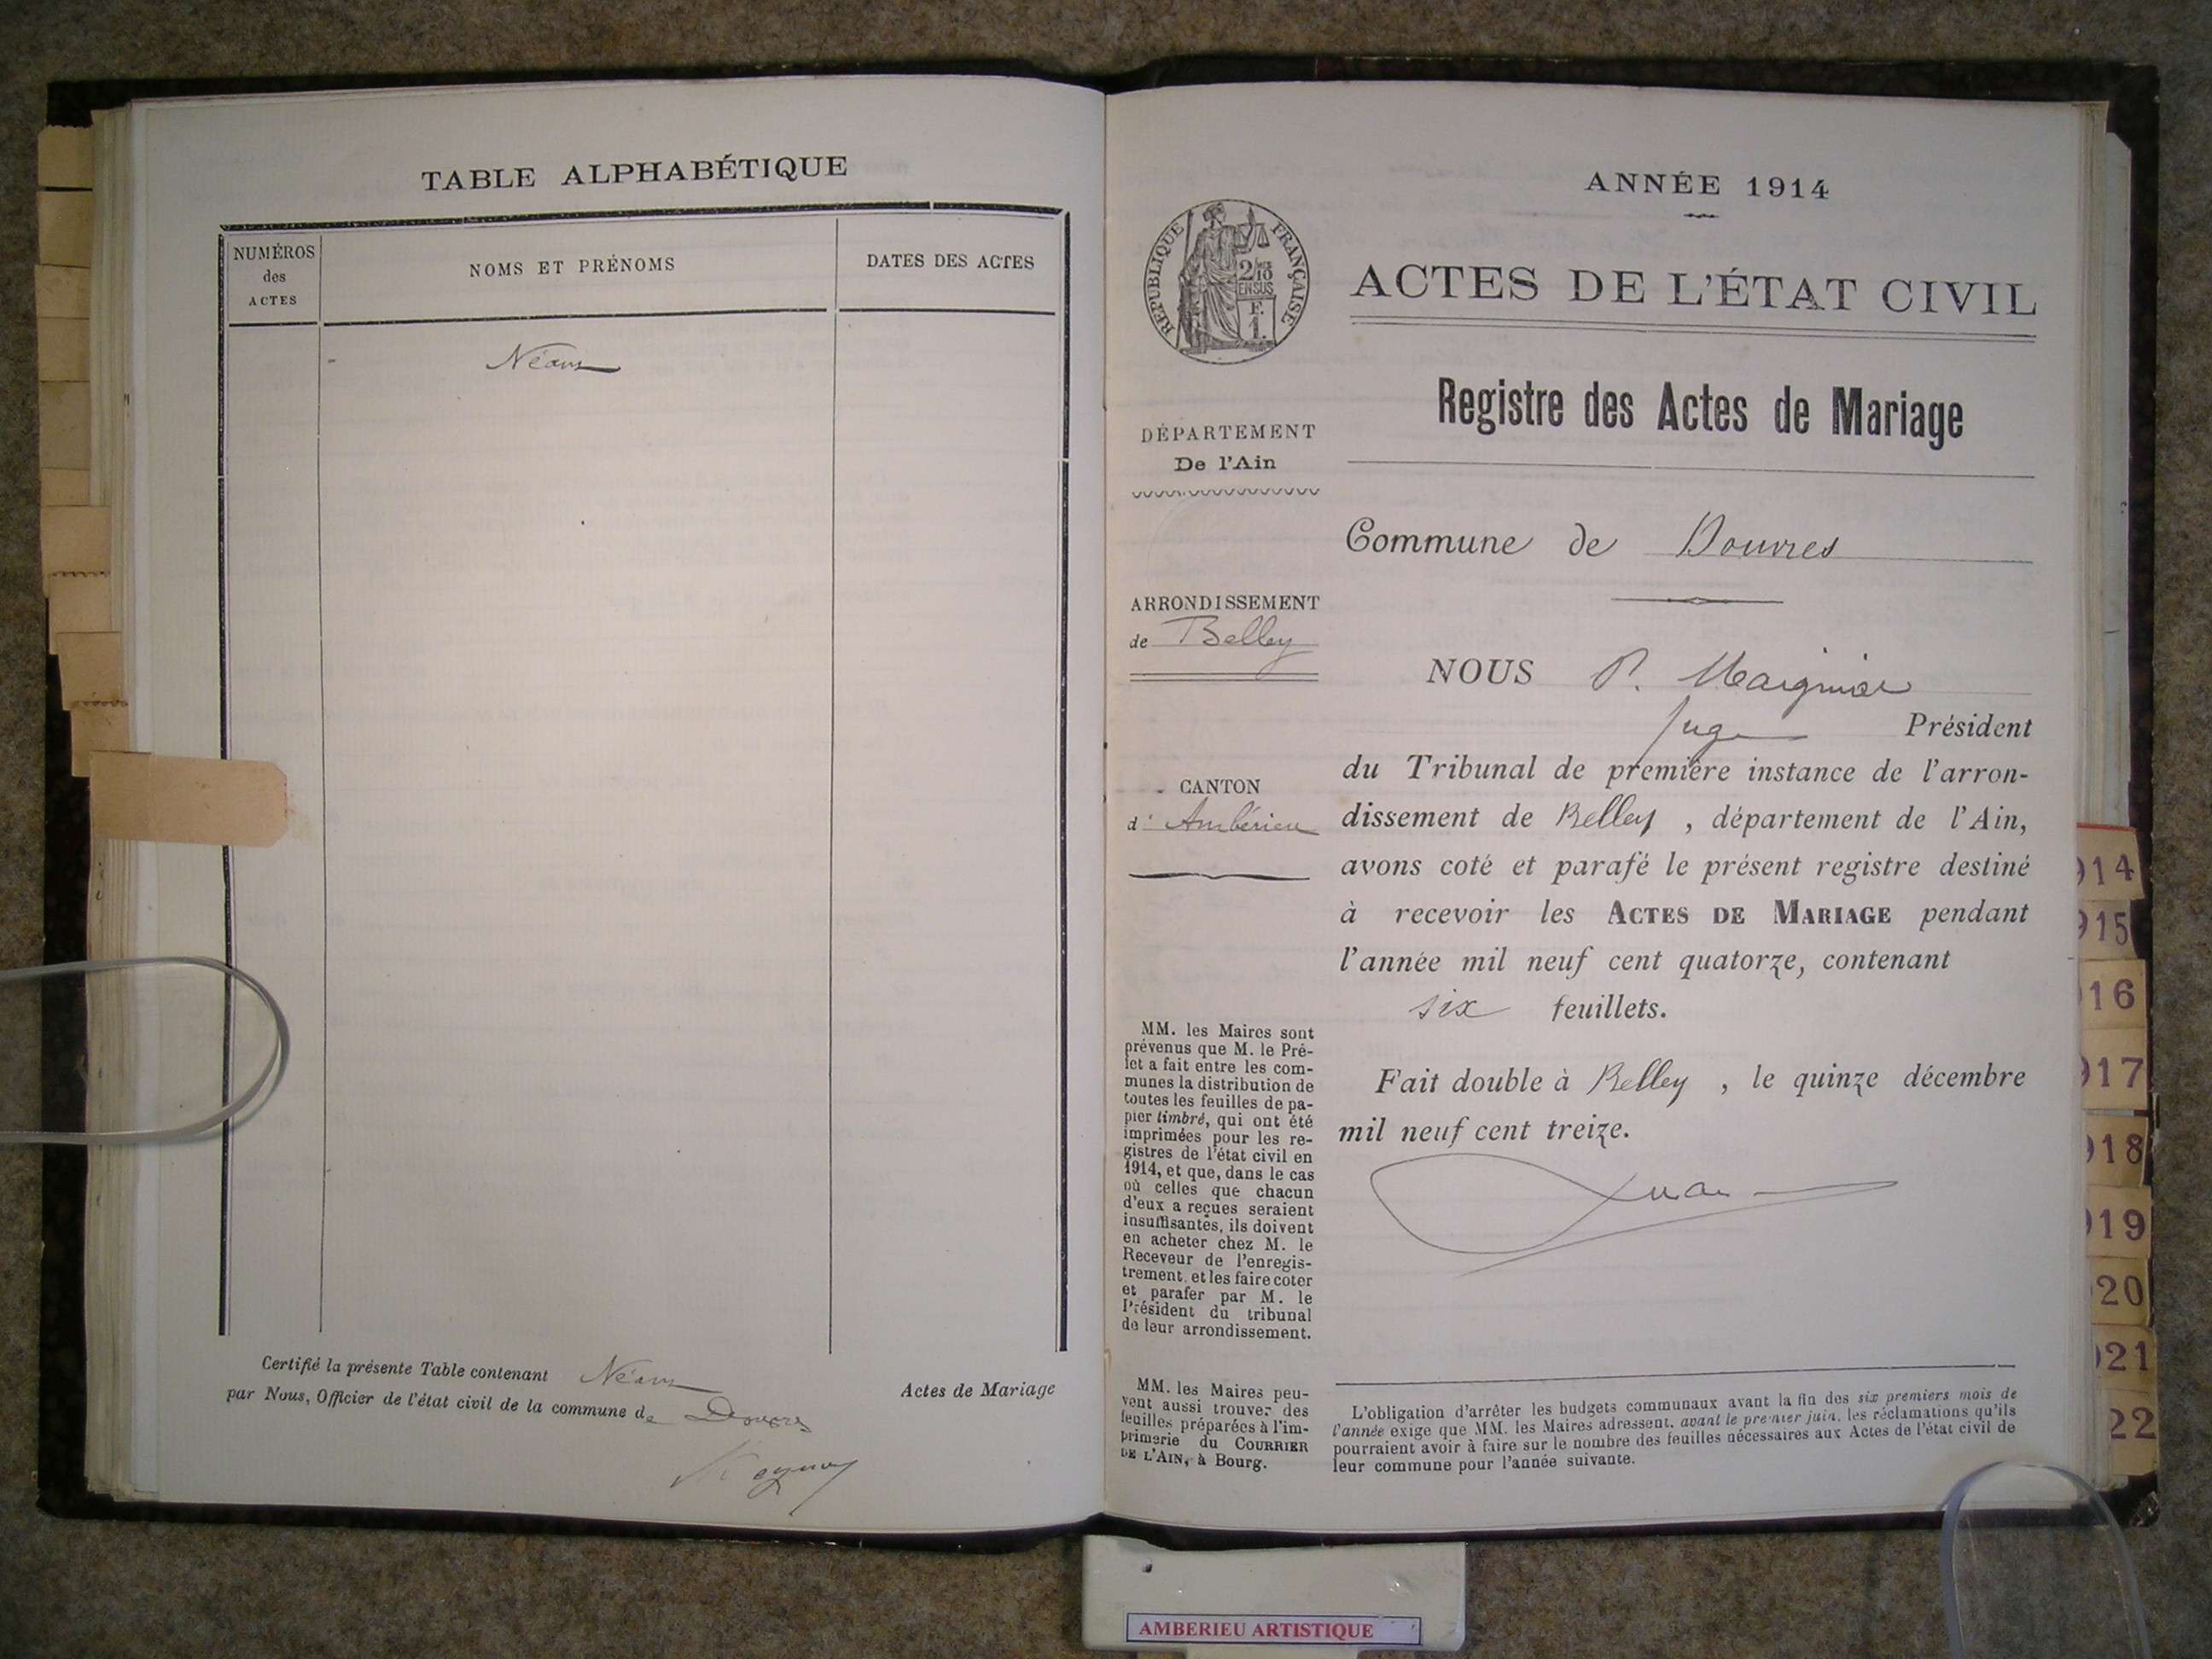 TABLE ALPHABÉTIQUE
NUMÉROS
des
ACTES
NOMS ET PRÉNOMS
DATES DES ACTES
Néant
Certifié la présente Table contenant Néant Actes de Mariage
par Nous, Officier de l'état civil de la commune de Douvres
ANNÉE 1914
RÉPUBLIQUE FRANÇAISE
2/10
EN SUS
F.
1.
ACTES DE L'ÉTAT CIVIL
Registre des Actes de Mariage
DÉPARTEMENT
De l'Ain
ARRONDISSEMENT
de Belley
CANTON
d' Ambérieu
MM. les Maires sont
prévenus que M. le Pré-
fet a fait entre les com-
munes la distribution de
toutes les feuilles de pa-
pier timbré, qui ont été
imprimées pour les re-
gistres de l'état civil en
1914, et que, dans le cas
où celles que chacun
d'eux a reçues seraient
insuffisantes, ils doivent
en acheter chez M. le
Receveur de l'enregis-
trement, et les faire coter
et parafer par M. le
Président du tribunal
de leur arrondissement.
MM. les Maires peu-
vent aussi trouver des
feuilles préparées à l'im-
primerie du COURRIER
DE L'AIN, à Bourg.
Commune de Douvres
NOUS P. Maignier
Juge Président
du Tribunal de première instance de l'arron-
dissement de Belley , département de l'Ain,
avons coté et parafé le présent registre destiné
à recevoir les ACTES DE MARIAGE pendant
l'année mil neuf cent quatorze, contenant
six feuillets.
Fait double à Belley , le quinze décembre
mil neuf cent treize.
L'obligation d'arrêter les budgets communaux avant la fin des six premiers mois de
l'année exige que MM. les Maires adressent, avant le premier juin, les réclamations qu'ils
pourraient avoir à faire sur le nombre des feuilles nécessaires aux Actes de l'état civil de
leur commune pour l'année suivante.
914
915
16
917
918
919
20
921
22
AMBERIEU ARTISTIQUE